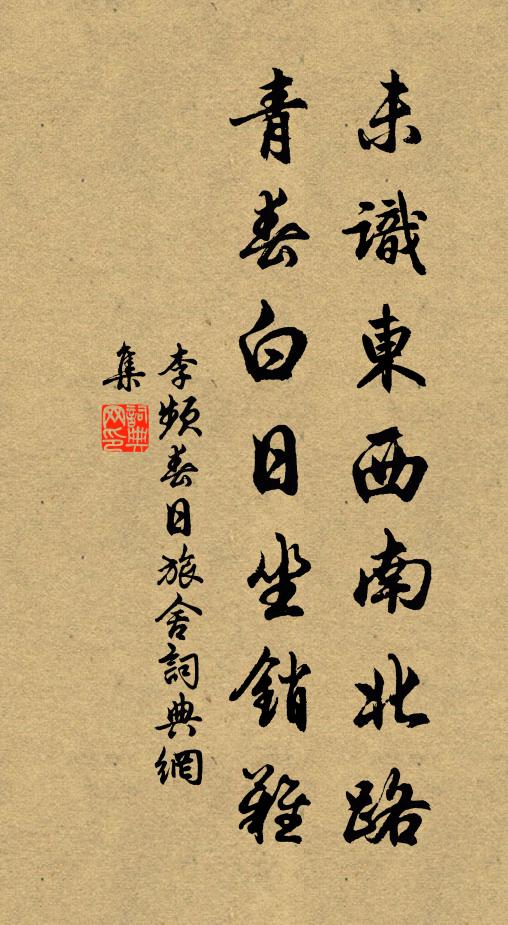 未識東西南北路
青春白日坐銷難
李頻春日旅舍詞典網
集
詞典
网印